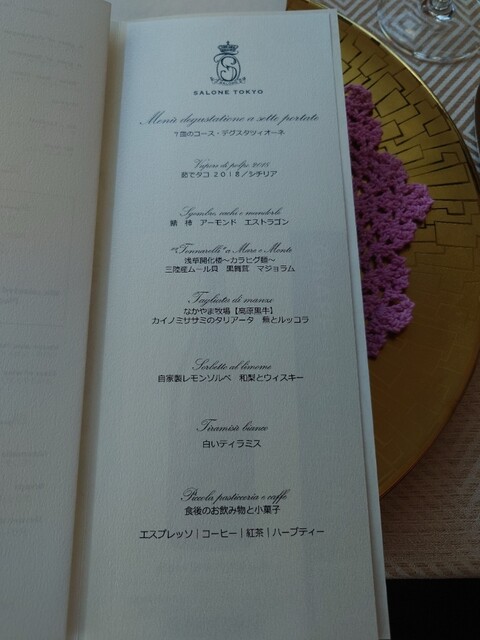 SALONE TOKYO
Menù degustazione a sette portate
7皿のコース・デグスタツィオーネ
Vapore di polpo 2018
茹でタコ 2018/シチリア
Sgombro, cachi e mandorle
鯖 柿 アーモンド エストラゴン
"Tonnarelli" a Mare e Monti
浅草開化楼～カラヒグ麺～
三陸産ムール貝 黒舞茸 マジョラム
Tagliata di manzo
なかやま牧場【高原黒牛】
カイノミササミのタリアータ 蕪とルッコラ
Sorbetto al limone
自家製レモンソルベ 和梨とウィスキー
Tiramisù bianco
白いティラミス
Piccola pasticceria e caffè
食後のお飲み物と小菓子
エスプレッソ｜コーヒー｜紅茶｜ハーブティー